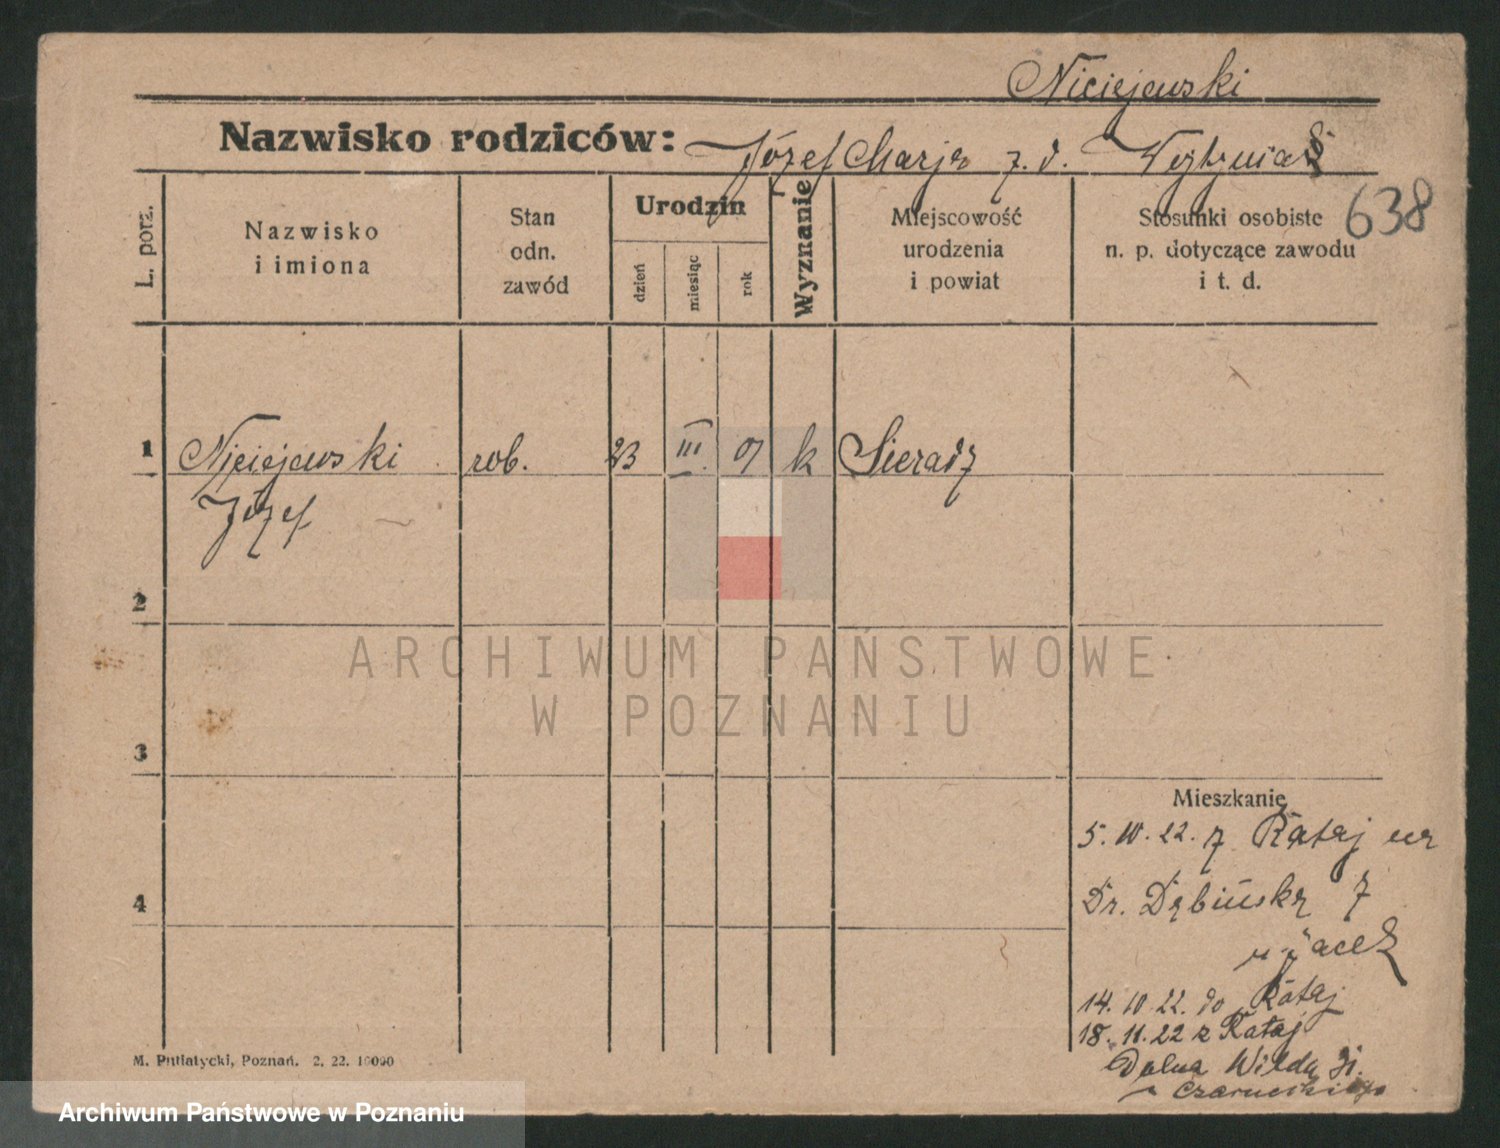 Niciejewski
Nazwisko rodziców: Józef Marja z. d.
638
L. porz.
Nazwisko i imiona
Stan odn. zawód
Urodzin
dzień
miesiąc
rok
Wyznanie
Miejscowość urodzenia i powiat
Stosunki osobiste n. p. dotyczące zawodu i t. d.
1 Niciejewski rob. 23 III. 07 k Sieradz
Józef
2
ARCHIWUM PAŃSTWOWE
W POZNANIU
3
Mieszkanie
5. 10. 22. z Rataj na
4
Dr. Dębińską 7
u Jacek
14. 10 22. do Rataj
18. 11. 22 z Rataj
Dolna Wilda 31.
M. Putiatycki, Poznań. 2. 22. 10000
Archiwum Państwowe w Poznaniu